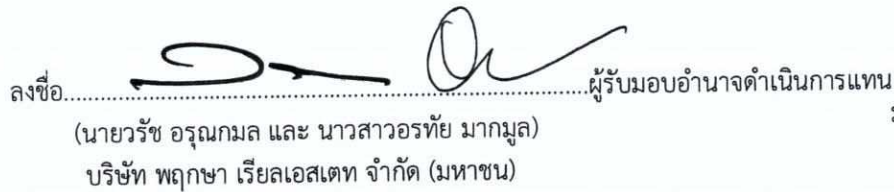 ลงชื่อ........................................................................ผู้รับมอบอำนาจดำเนินการแทน
(นายวรัช อรุณกมล และ นาวสาวอรทัย มากมูล)
บริษัท พฤกษา เรียลเอสเตท จำกัด (มหาชน)